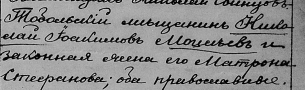 Тобольскій мѣщанинъ Нико-
лай Іоакимовъ и
законная жена его Матрона
Стефанова; оба православные.